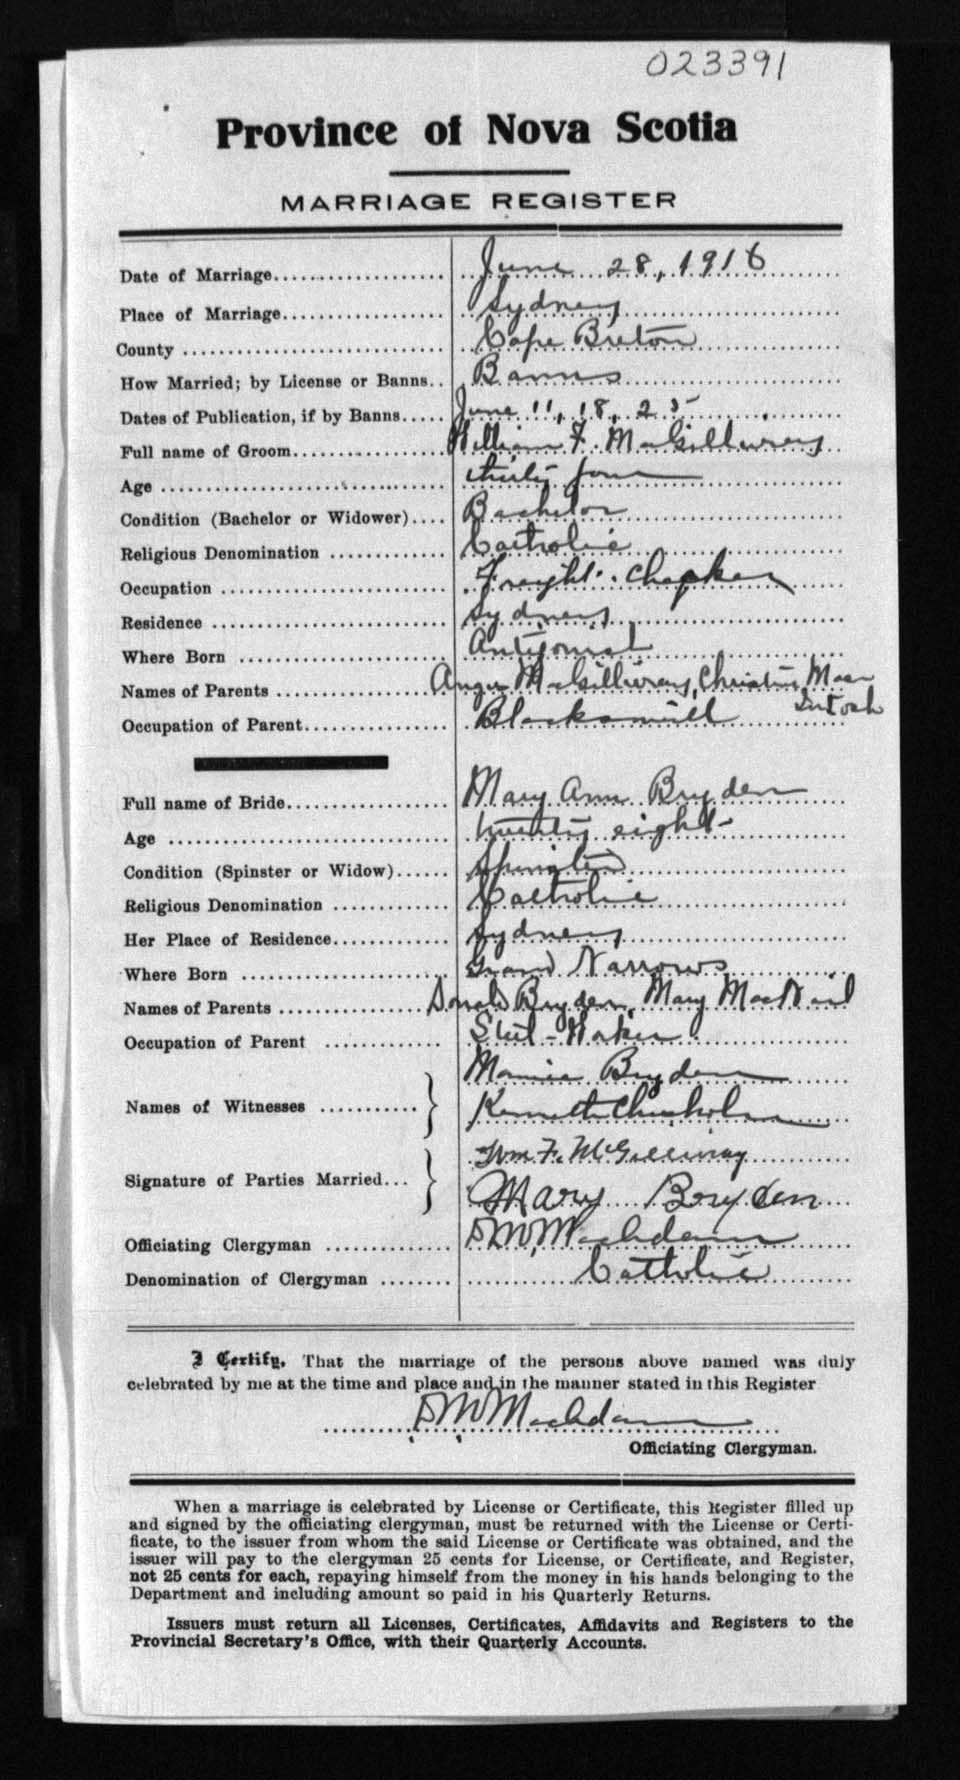 023391
Province of Nova Scotia
MARRIAGE REGISTER
Date of Marriage.................... June 28, 1916
Place of Marriage................... Sydney
County ............................. Cape Breton
How Married; by License or Banns.. Banns
Dates of Publication, if by Banns..... June 11, 18, 25
Full name of Groom.................. William F. MacGillivray
Age ................................ thirty four
Condition (Bachelor or Widower).... Bachelor
Religious Denomination ............. Catholic
Occupation ......................... Freight Checker
Residence .......................... Sydney
Where Born ....................... Antigonish
Names of Parents ................... Angus MacGillivray, Christine Mac
Intosh
Occupation of Parent................ Blacksmith
Full name of Bride.................. Mary Ann Bryden
Age ............................... twenty eight
Condition (Spinster or Widow)...... Spinster
Religious Denomination ............. Catholic
Her Place of Residence............. Sydney
Where Born ....................... Grand Narrows
Names of Parents ................... Donald Bryden, Mary MacNeil
Occupation of Parent ............. Steel-Worker
Mamie Bryden
Names of Witnesses ...........
Kenneth Chisholm
Wm F. McGillivray
Signature of Parties Married...
Mary Bryden
Officiating Clergyman .............. D M MacAdam
Denomination of Clergyman ........ Catholic
I Certify, That the marriage of the persons above named was duly
celebrated by me at the time and place and in the manner stated in this Register
D M MacAdam
Officiating Clergyman.
When a marriage is celebrated by License or Certificate, this Register filled up
and signed by the officiating clergyman, must be returned with the License or Certi-
ficate, to the issuer from whom the said License or Certificate was obtained, and the
issuer will pay to the clergyman 25 cents for License, or Certificate, and Register,
not 25 cents for each, repaying himself from the money in his hands belonging to the
Department and including amount so paid in his Quarterly Returns.
Issuers must return all Licenses, Certificates, Affidavits and Registers to the
Provincial Secretary's Office, with their Quarterly Accounts.